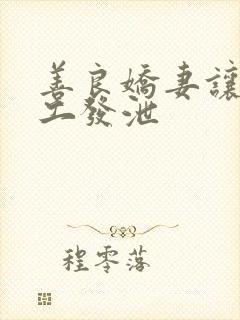 善良嬌妻讓
工發泄
程零落